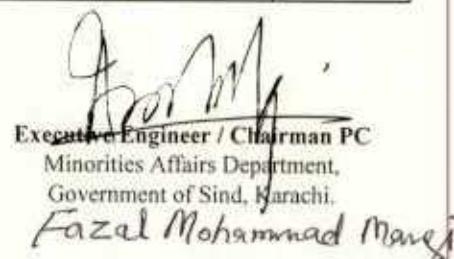 Executive Engineer / Chairman PC
Minorities Affairs Department,
Government of Sind, Karachi.
Fazal Mohammad